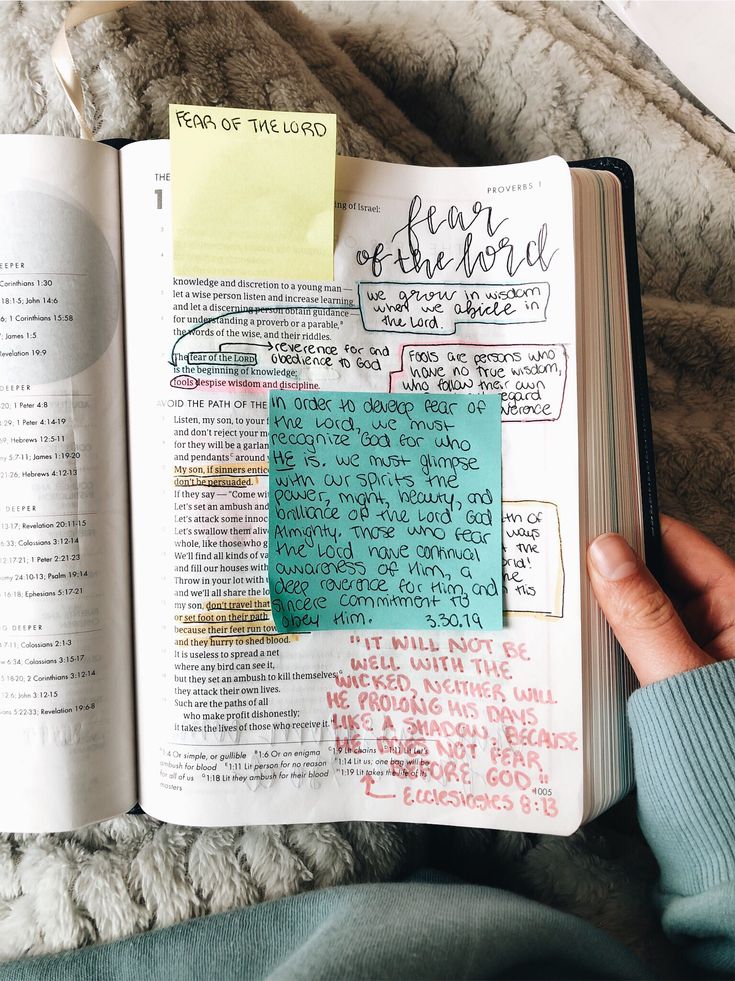 EEPER
Corinthians 1:30
18:1-5; John 14:6
1 Corinthians 15:58
James 1:5
Revelation 19:9
:20, 1 Peter 4:8
:29, 1 Peter 4:14
:69, Hebrews 12:5-11
5:7-11; James 1:19-20
21-26; Hebrews 4:12-13
EEPER
13-17; Revelation 20:11-15
6:33; 1 Corinthians 2:13-14
12-17:21; 1 Peter 2:21-23
my 24:10-13; Psalm 19:14
16:18; Ephesians 5:17-21
NG DEEPER
7-11; Colossians 2:1-3
6:34, Colossians 3:15-17
Colossians 3:12-14
2; John 3:12-15
5:22:33; Revelation 19:6-8
FEAR OF THE LORD
THE
PROVERBS 1
1
ing of Israel:
fear
of the lord
knowledge and discretion to a young man —
let a wise person listen and increase learning
and let a discerning person obtain guidance
for understanding a proverb or a parable,
the words of the wise, and their riddles.
we grow in wisdom
when we abide in
the Lord.
The fear of the LORD
is the beginning of knowledge;
fools despise wisdom and discipline.
reverence for and
obedience to God
FOOLS are persons who
have no true wisdom,
who follow their own
regard
verence
AVOID THE PATH OF THE
Listen, my son, to your
and don't reject your m
for they will be a garlan
and pendants around
My son, if sinners entic
don't be persuaded.
If they say — "Come wi
Let's set an ambush and
Let's attack some innoc
whole, like those who g
We'll find all kinds of va
and fill our houses with
Throw in your lot with
and we'll all share the l
my son, don't travel that
or set foot on their path
because their feet run tow
and they hurry to shed blood.
It is useless to spread a net
where any bird can see it,
but they set an ambush to kill themselves;
they attack their own lives.
Such are the paths of all
who make profit dishonestly;
it takes the lives of those who receive it.
In order to develop fear of
the Lord, we must
recognize God for who
HE is. we must glimpse
with our spirits the
power, might, beauty, and
brilliance of the Lord God
Almighty. Those who fear
the Lord have continual
awareness of Him, a
deep reverence for Him, and
sincere commitment to
obey Him.
3.30.19
th of
ways
t the
orld!
he
n His
"IT WILL NOT BE
WELL WITH THE
WICKED, NEITHER WILL
HE PROLONG HIS DAYS
LIKE A SHADOW, BECAUSE
HE DOES NOT FEAR
BEFORE GOD."
Ecclesiastes 8:13
1:4 Or simple, or gullible 1:6 Or an enigma 1:9 Lit chains 1:11 Lit Let's
ambush for blood 1:11 Lit person for no reason 1:14 Lit us; one bag will be
for all of us 1:18 Lit they ambush for their blood 1:19 Lit takes the life of its
masters
1005